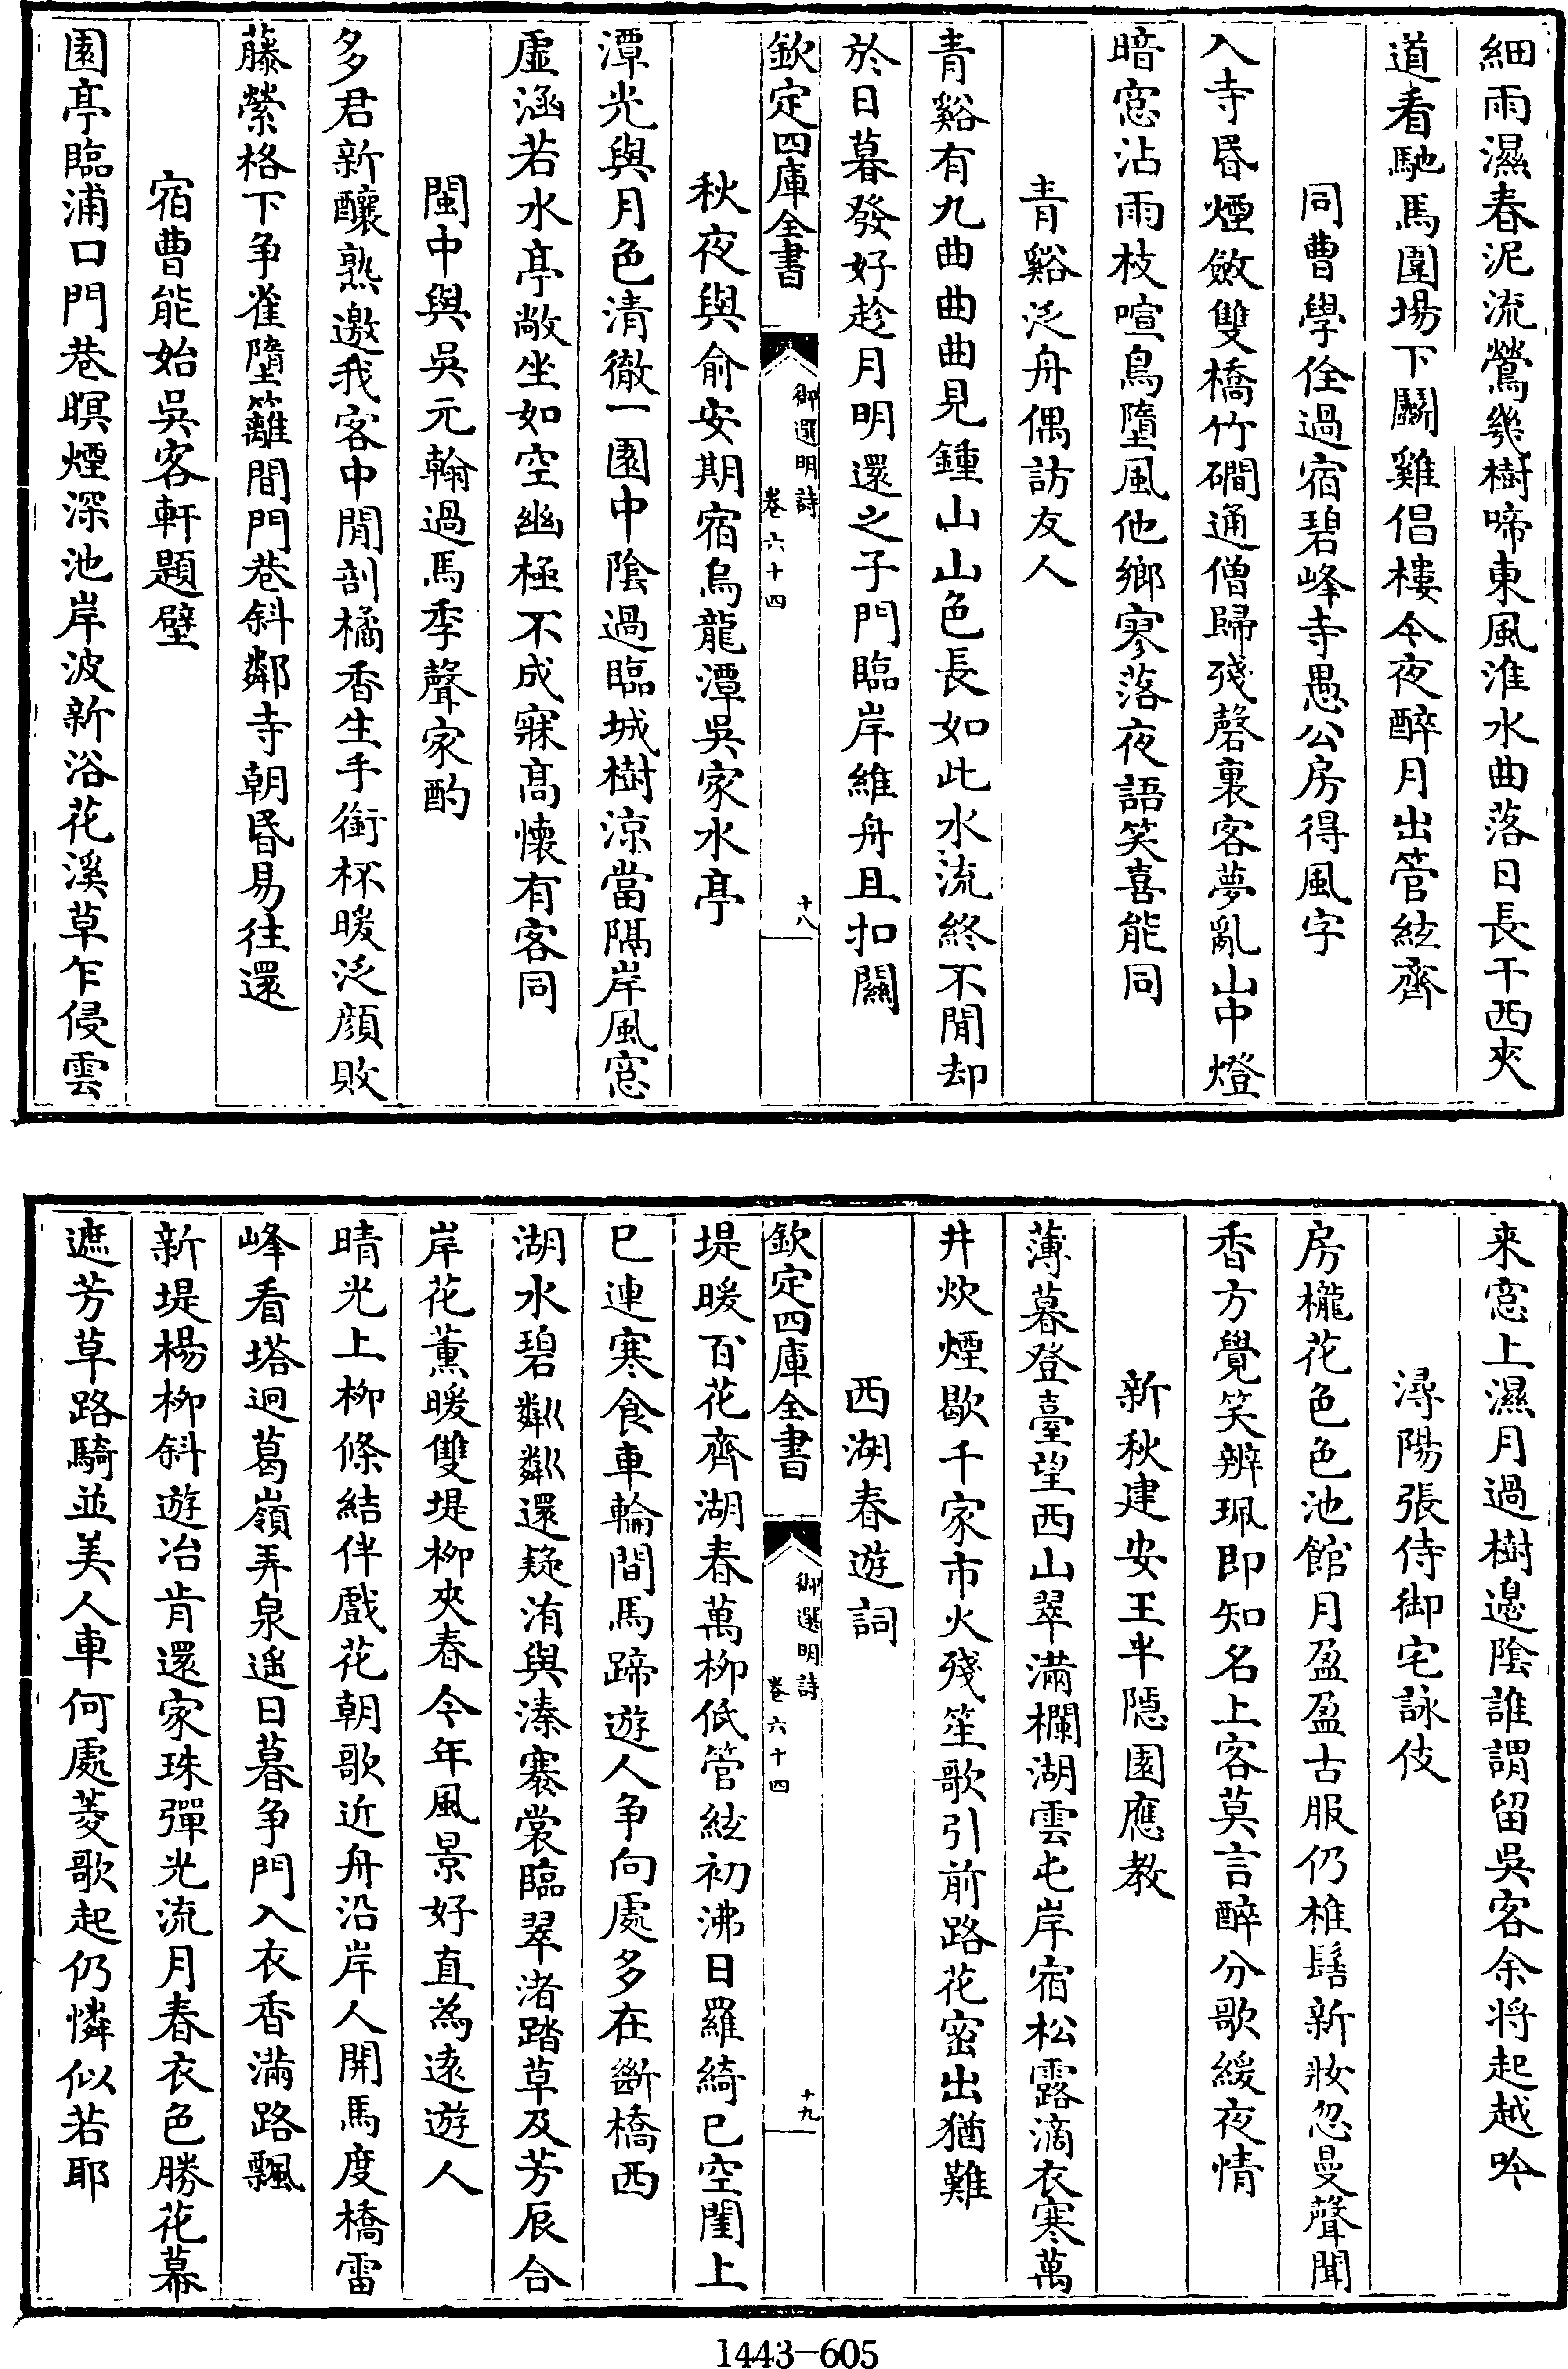 細雨濕春泥流鶯幾樹啼東風淮水曲落日長干西夾
道看馳馬圍場下鬬雞倡樓今夜醉月出管絃齊
同曹學佺過宿碧峰寺愚公房得風字
入寺昏煙斂雙橋竹磵通僧歸殘磬裏客夢亂山中燈
暗窓沾雨枝喧鳥墮風他鄉寥落夜語笑喜能同
青谿泛舟偶訪友人
青谿有九曲曲曲見鍾山山色長如此水流終不閒却
於日暮發好趁月明還之子門臨岸維舟且扣關
欽定四庫全書
御選明詩
卷六十四
十八
秋夜與俞安期宿烏龍潭吳家水亭
潭光與月色清徹一園中陰過臨城樹涼當隔岸風窓
虛涵若水亭敞坐如空幽極不成寐高懷有客同
閩中與吳元翰過馬季聲家酌
多君新釀熟邀我客中閒剖橘香生手銜杯暖泛顔敗
藤縈格下争雀墮籬間門巷斜鄰寺朝昏易往還
宿曹能始吳客軒題壁
園亭臨浦口門巷暝煙深池岸波新浴花溪草乍侵雲
来窓上濕月過樹邊陰誰謂留吳客余将起越吟
潯陽張侍御宅詠伎
房櫳花色色池館月盈盈古服仍椎髻新妝忽曼聲聞
香方覺笑辨珮即知名上客莫言醉分歌緩夜情
新秋建安王半隱園應教
薄暮登臺望西山翠滿欄湖雲屯岸宿松露滴衣寒萬
井炊煙歇千家市火殘笙歌引前路花密出猶難
西湖春遊詞
欽定四庫全書
御選明詩
卷六十四
十九
堤暖百花齊湖春萬柳低管絃初沸日羅綺已空閨上
巳連寒食車輪間馬蹄遊人争向處多在斷橋西
湖水碧粼粼還疑洧與溱褰裳臨翠渚踏草及芳辰合
岸花薰暖雙堤柳夾春今年風景好直為逺遊人
晴光上柳條結伴戲花朝歌近舟沿岸人開馬度橋雷
峰看塔迥葛嶺弄泉遥日暮争門入衣香滿路飄
新堤楊柳斜遊冶肯還家珠彈光流月春衣色勝花幕
遮芳草路騎並美人車何處菱歌起仍憐似若耶
1443-605